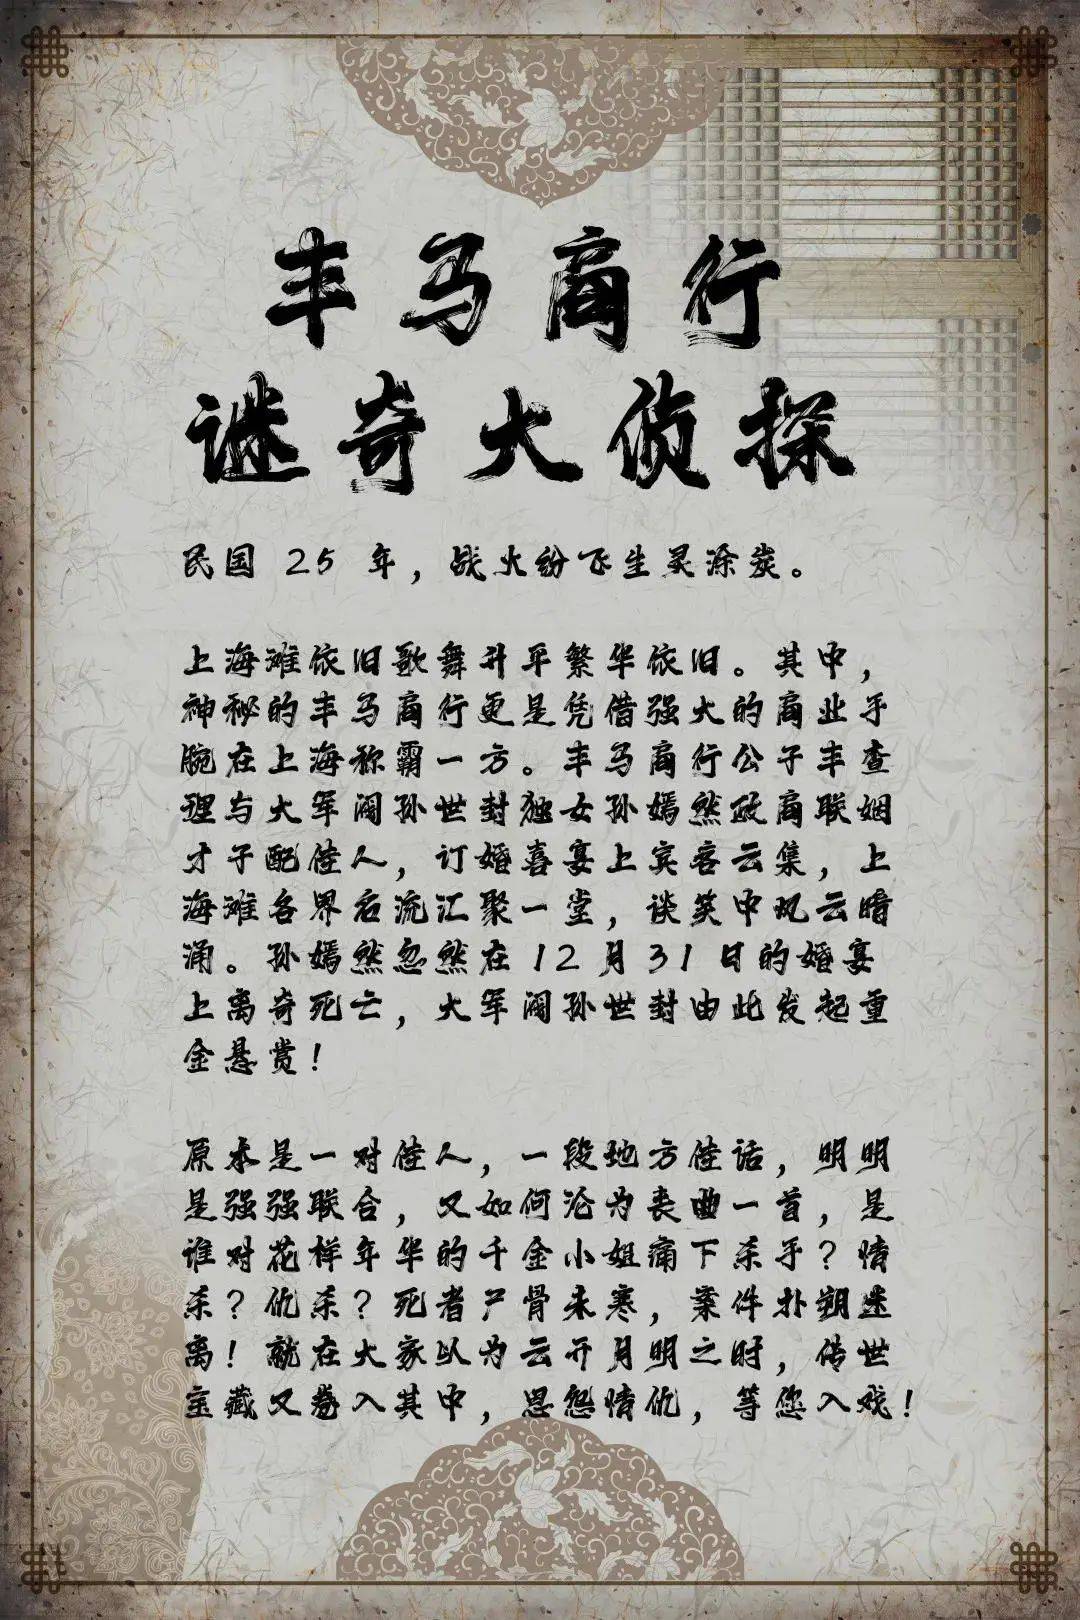 丰马商行
谜奇大侦探
民国 25 年，战火纷飞生灵涂炭。
上海滩依旧歌舞升平繁华依旧。其中，
神秘的丰马商行更是凭借强大的商业手
腕在上海称霸一方。丰马商行公子丰查
理与大军阀孙世封独女孙嫣然政商联姻
才子配佳人，订婚喜宴上宾客云集，上
海滩各界名流汇聚一堂，谈笑中风云暗
涌。孙嫣然忽然在 12 月 31 日的婚宴
上离奇死亡，大军阀孙世封由此发起重
金悬赏！
原本是一对佳人，一段地方佳话，明明
是强强联合，又如何沦为丧曲一首，是
谁对花样年华的千金小姐痛下杀手？情
杀？仇杀？死者尸骨未寒，案件扑朔迷
离！就在大家以为云开月明之时，传世
宝藏又卷入其中，恩怨情仇，等您入戏！